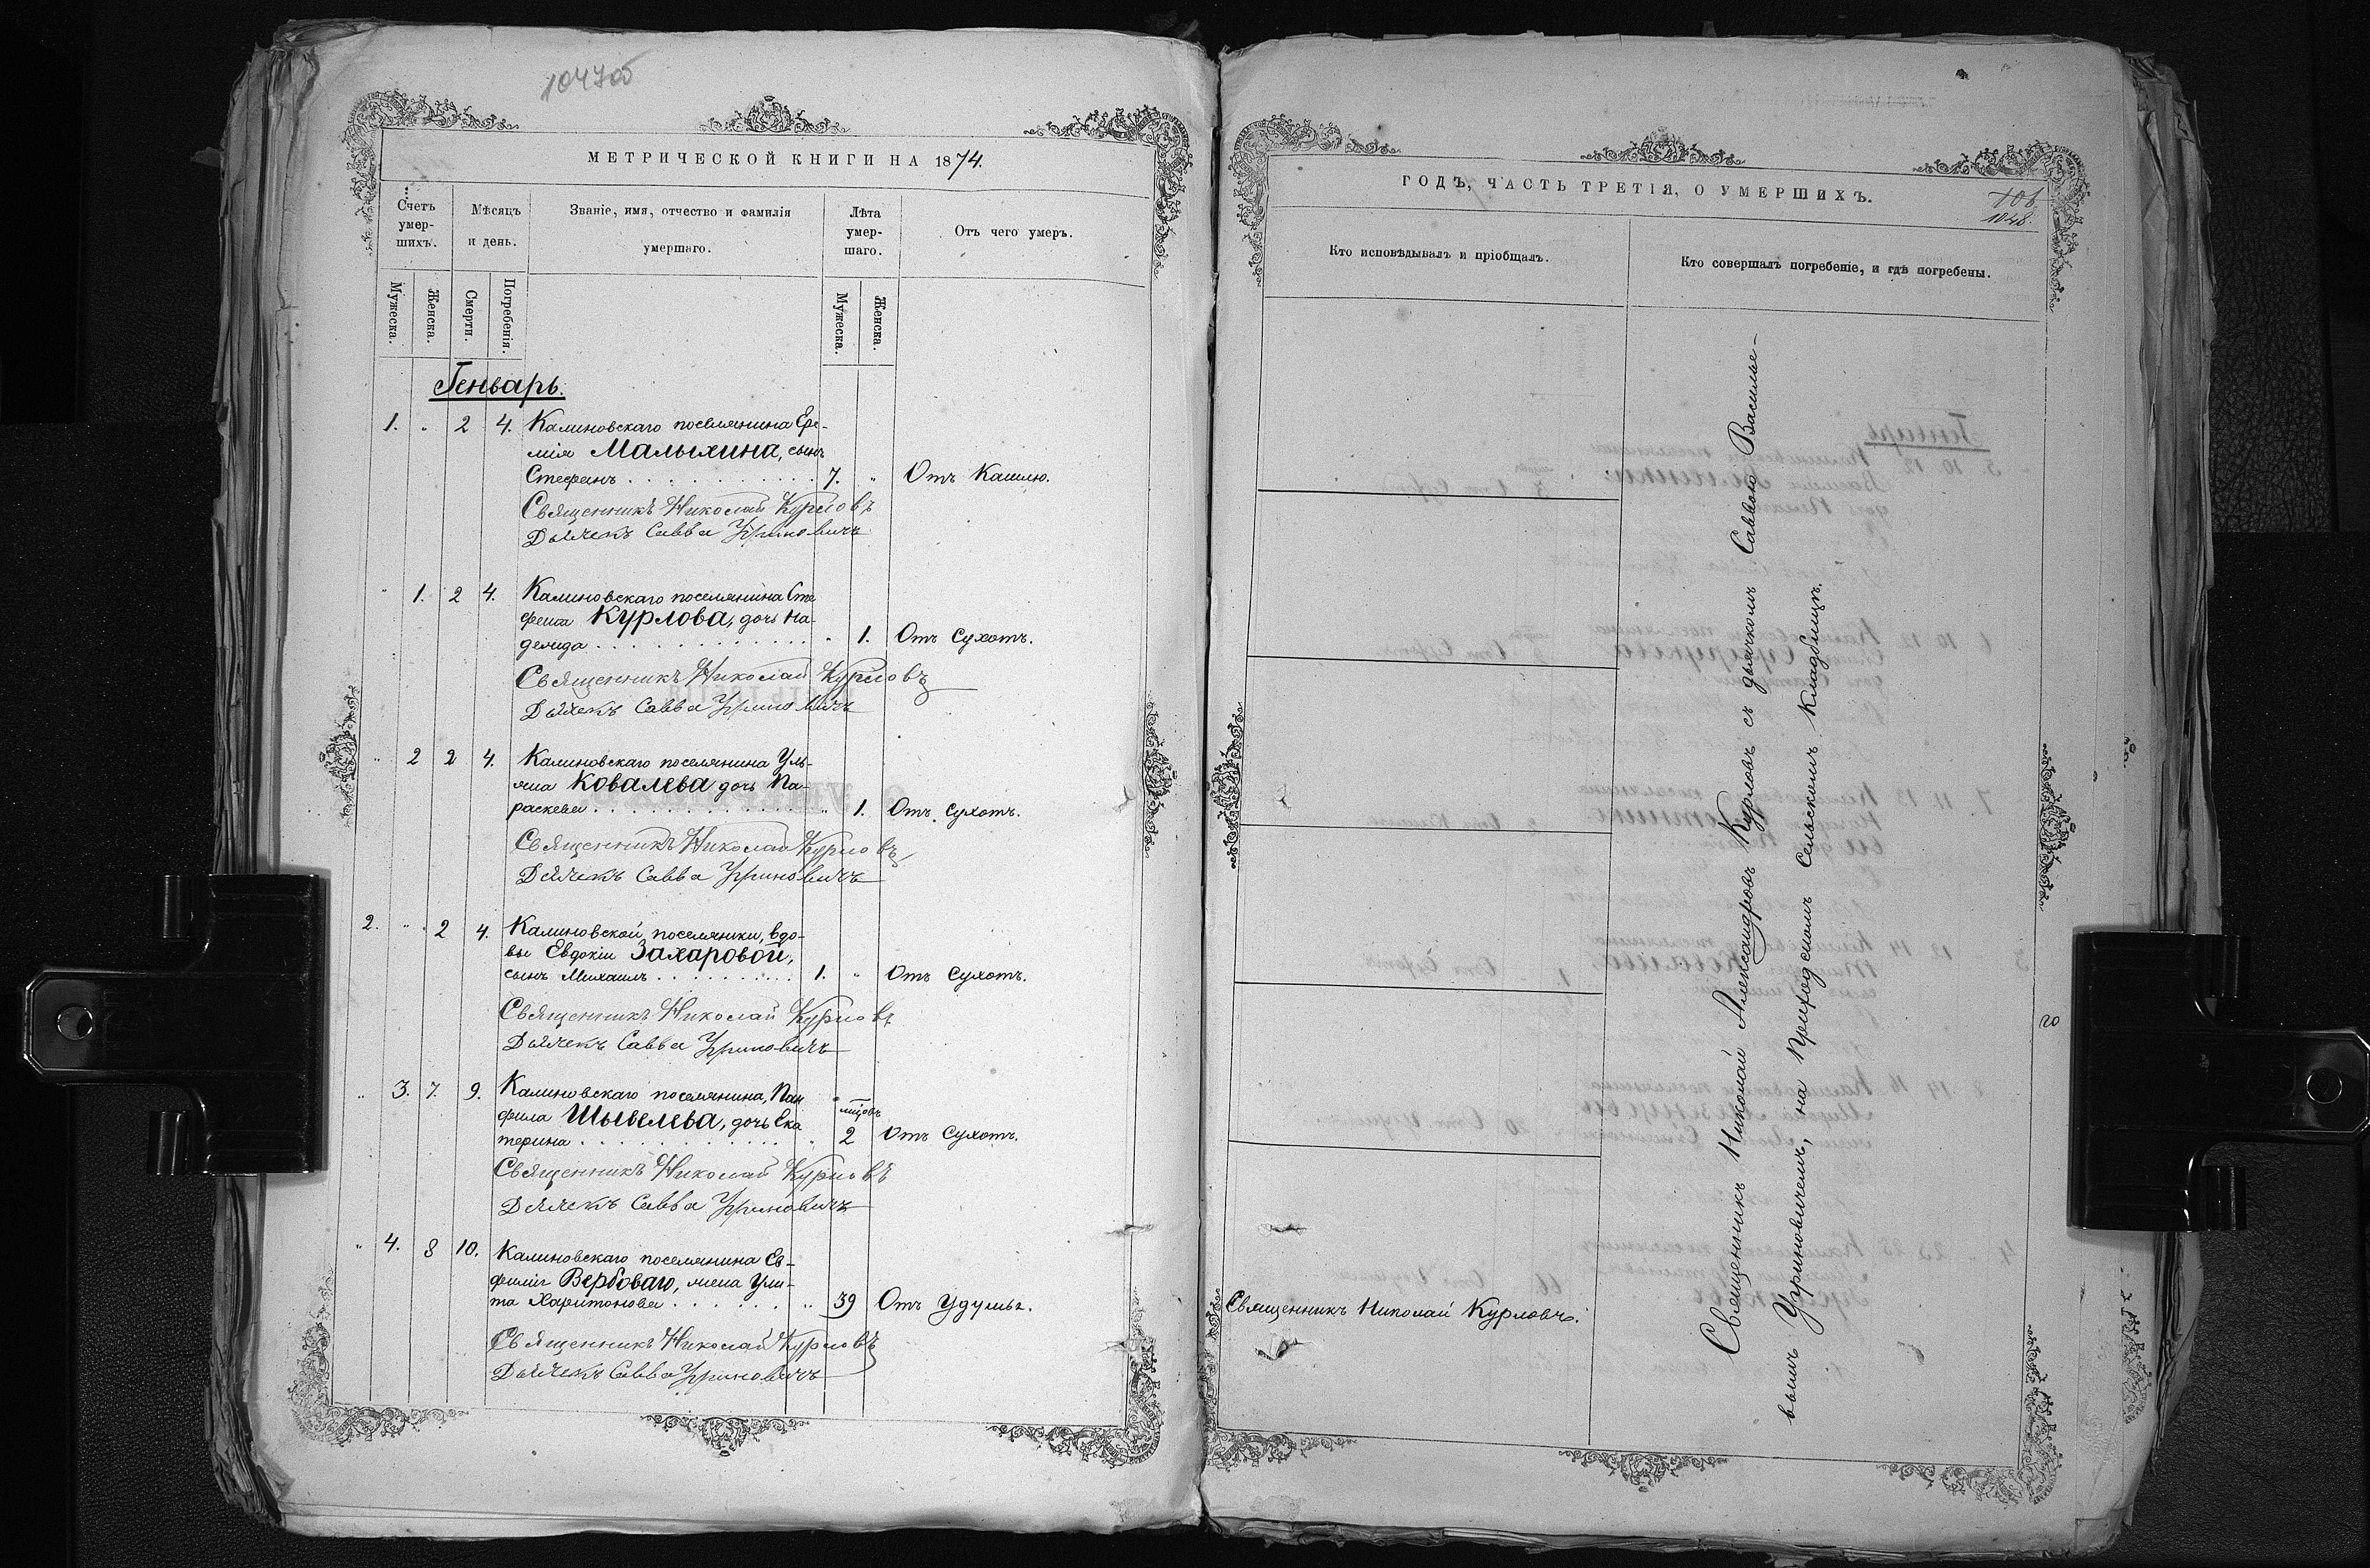 МЕТРИЧЕСКОЙ КНИГИ НА 1874.
Счетъ умершихъ.
Мѣсяцъ и день.
Званіе, имя, отчество и фамилія умершаго.
Лѣта умершаго.
Отъ чего умеръ.
Мужеска.
Женска.
Смерти.
Погребенія.
Мужеска.
Женска.
Генварь.
1. " 2 4. Калиновскаго поселянина Ере-
мія Малыхина, сынъ
Стефанъ . . . 7. " Отъ Кашлю.
Священникъ Николай Курловъ
Дьячекъ Савва Угриновичъ
" 1. 2 4. Калиновскаго поселянина Сте
фена Курлова, дочь На-
дежда . . . " 1. Отъ Сухотъ.
Священникъ Николай Курловъ
Дьячекъ Савва Угриновичъ
" 2 2 4. Калиновскаго поселянина Уль-
яна Ковалева дочь Па-
раскева . . . " 1. Отъ Сухотъ.
Священникъ Николай Курловъ
Дьячекъ Савва Угриновичъ
2. " 2 4. Калиновской поселянки, вдо-
вы Евдокіи Захаровой,
сынъ Михаилъ . . . 1. " Отъ Сухотъ.
Священникъ Николай Курловъ
Дьячекъ Савва Угриновичъ
" 3. 7. 9. Калиновскаго поселянина, Пан
фила Шывелева, дочь Ека
терина . . . " мцовъ 2 Отъ Сухотъ.
Священникъ Николай Курловъ
Дьячекъ Савва Угриновичъ
" 4. 8 10. Калиновскаго поселянина Ев-
фимія Вербоваго, жена Ули-
та Харитонова . . . " 39 Отъ Удушья.
Священникъ Николай Курловъ
Дьячекъ Савва Угриновичъ
ГОДЪ, ЧАСТЬ ТРЕТІЯ, О УМЕРШИХЪ.
1048.
Кто исповѣдывалъ и пріобщалъ.
Кто совершалъ погребеніе, и гдѣ погребены.
Священникъ Николай Курловъ.
Священникъ Николай Александровъ Курловъ съ дьячкомъ Саввою Василье-
вымъ Угриновичемъ, на Приходскомъ Сельскомъ кладбищѣ.